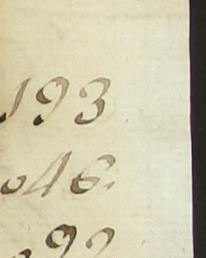 193
046.